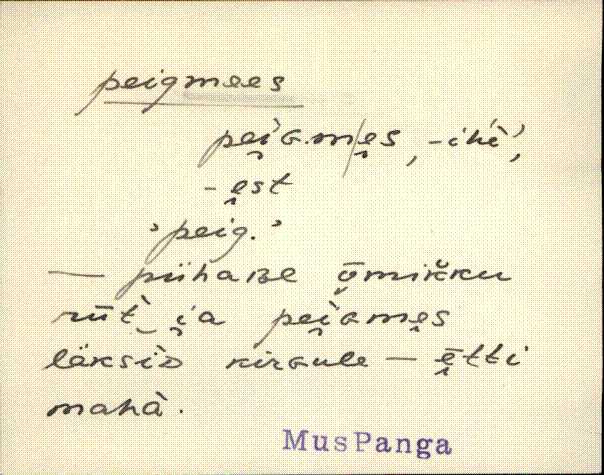 peigmees
pei̯ɢ.m/e̮s, -ihè,
-e̮st
'peig.'
— pühaʙe ō̬mikku
rǖt̀ i̯a pei̯ɢme̮s
läksiᴅ kirɢule — ē̮tti
mahà.
MusPanga